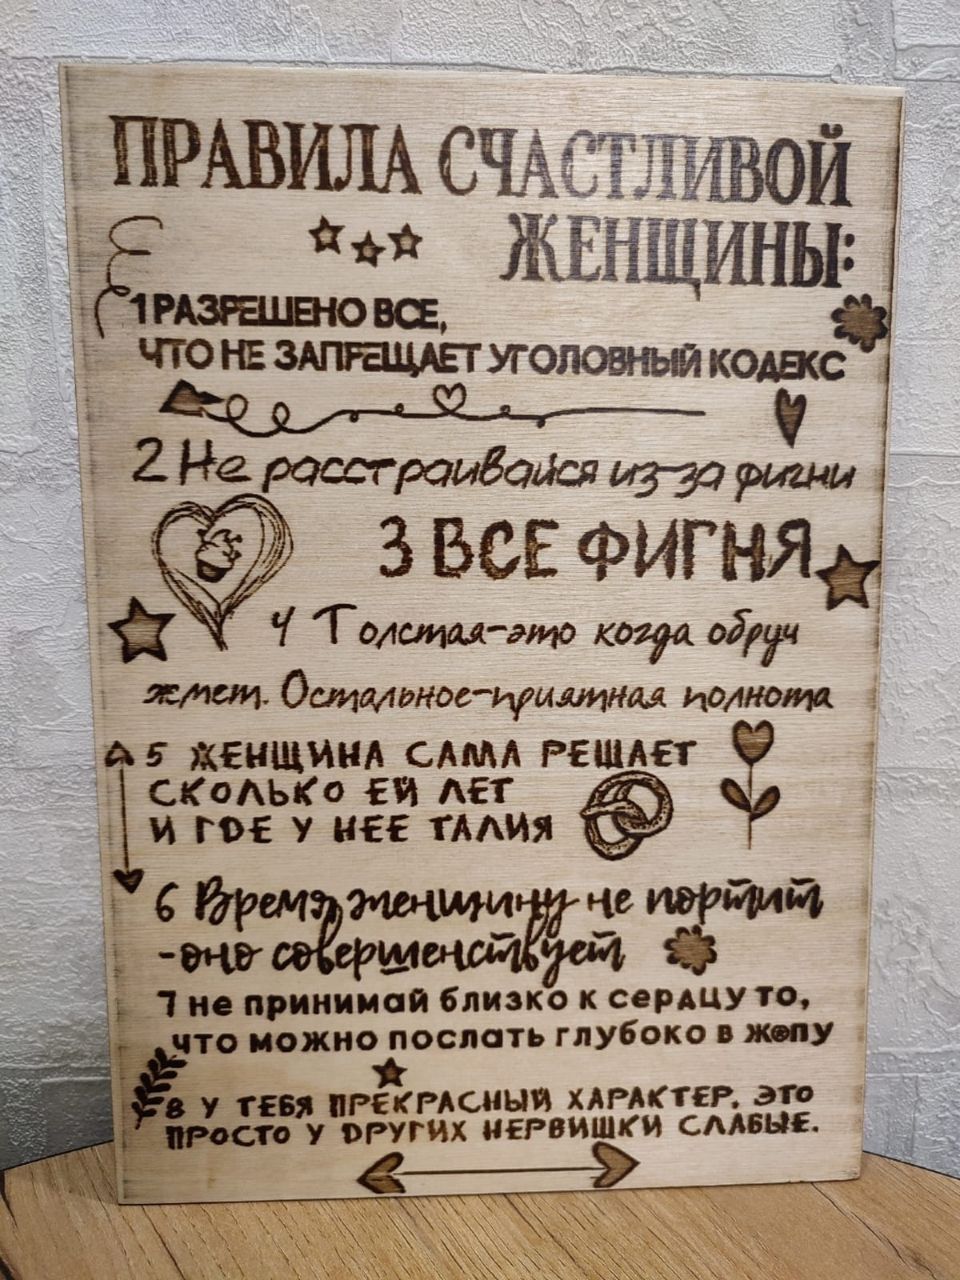 ПРАВИЛА СЧАСТЛИВОЙ
ЖЕНЩИНЫ:
1 РАЗРЕШЕНО ВСЕ,
ЧТО НЕ ЗАПРЕЩАЕТ УГОЛОВНЫЙ КОДЕКС
2 Не расстраивайся из-за фигни
3 ВСЕ ФИГНЯ
4 Толстая-это когда обруч
жмет. Остальное-приятная полнота
5 ЖЕНЩИНА САМА РЕШАЕТ
СКОЛЬКО ЕЙ ЛЕТ
И ГДЕ У НЕЕ ТАЛИЯ
6 Время женщину не портит
-оно совершенствует
7 не принимай близко к сердцу то,
что можно послать глубоко в ж@пу
8 У ТЕБЯ ПРЕКРАСНЫЙ ХАРАКТЕР, ЭТО
ПРОСТО У ДРУГИХ НЕРВИШКИ СЛАБЫЕ.